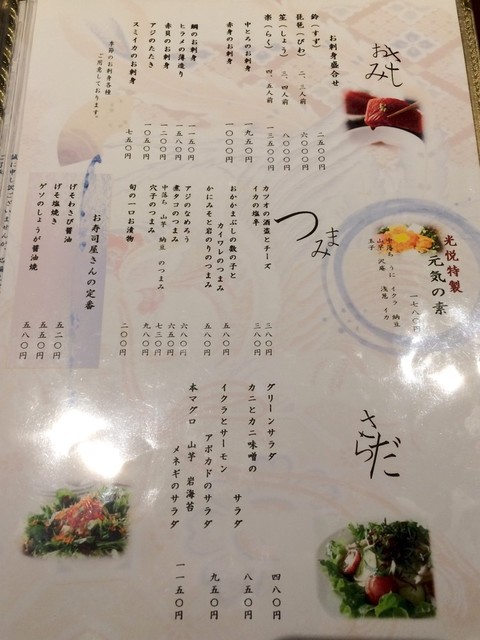 おさしみ
お刺身盛合せ
鈴（すず） 二五〇〇円
琵琶（びわ） 二、三人前 六〇〇〇円
笙（しょう） 三、四人前 八〇〇〇円
楽（らく） 四、五人前 一三五〇〇円
中とろのお刺身 一九五〇円
赤身のお刺身 一〇〇〇円
鯛のお刺身 一一五〇円
ヒラメの薄造り 一五八〇円
赤貝のお刺身 一二〇〇円
アジのたたき 一〇五〇円
スミイカのお刺身 七五〇円
季節のお刺身各種
ご用意しております。
光悦特製
元気の素
一七八〇円
中落ち うに イクラ 納豆
山芋 沢庵 浅葱 イカ
玉子
つまみ
カツオの酒盗とチーズ 三八〇円
イカの塩辛 三八〇円
おかかまぶしの数の子と
カイワレのつまみ 五八〇円
かにみそと岩のりのつまみ 五八〇円
アジのなめろう 六八〇円
煮タコのつまみ 六五〇円
中落ち 山芋 納豆 のつまみ 七三〇円
穴子のつまみ 九八〇円
旬の一口お漬物 二〇〇円
お寿司屋さんの定番
げそわさび醤油 五二〇円
げそ塩焼き 五五〇円
ゲソのしょうが醤油焼 五八〇円
さらだ
グリーンサラダ 四八〇円
カニとカニ味噌の
サラダ 八五〇円
イクラとサーモン
アボカドのサラダ 九五〇円
本マグロ 山芋 岩海苔
メネギのサラダ 一一五〇円
誠に申し訳ございませんが、